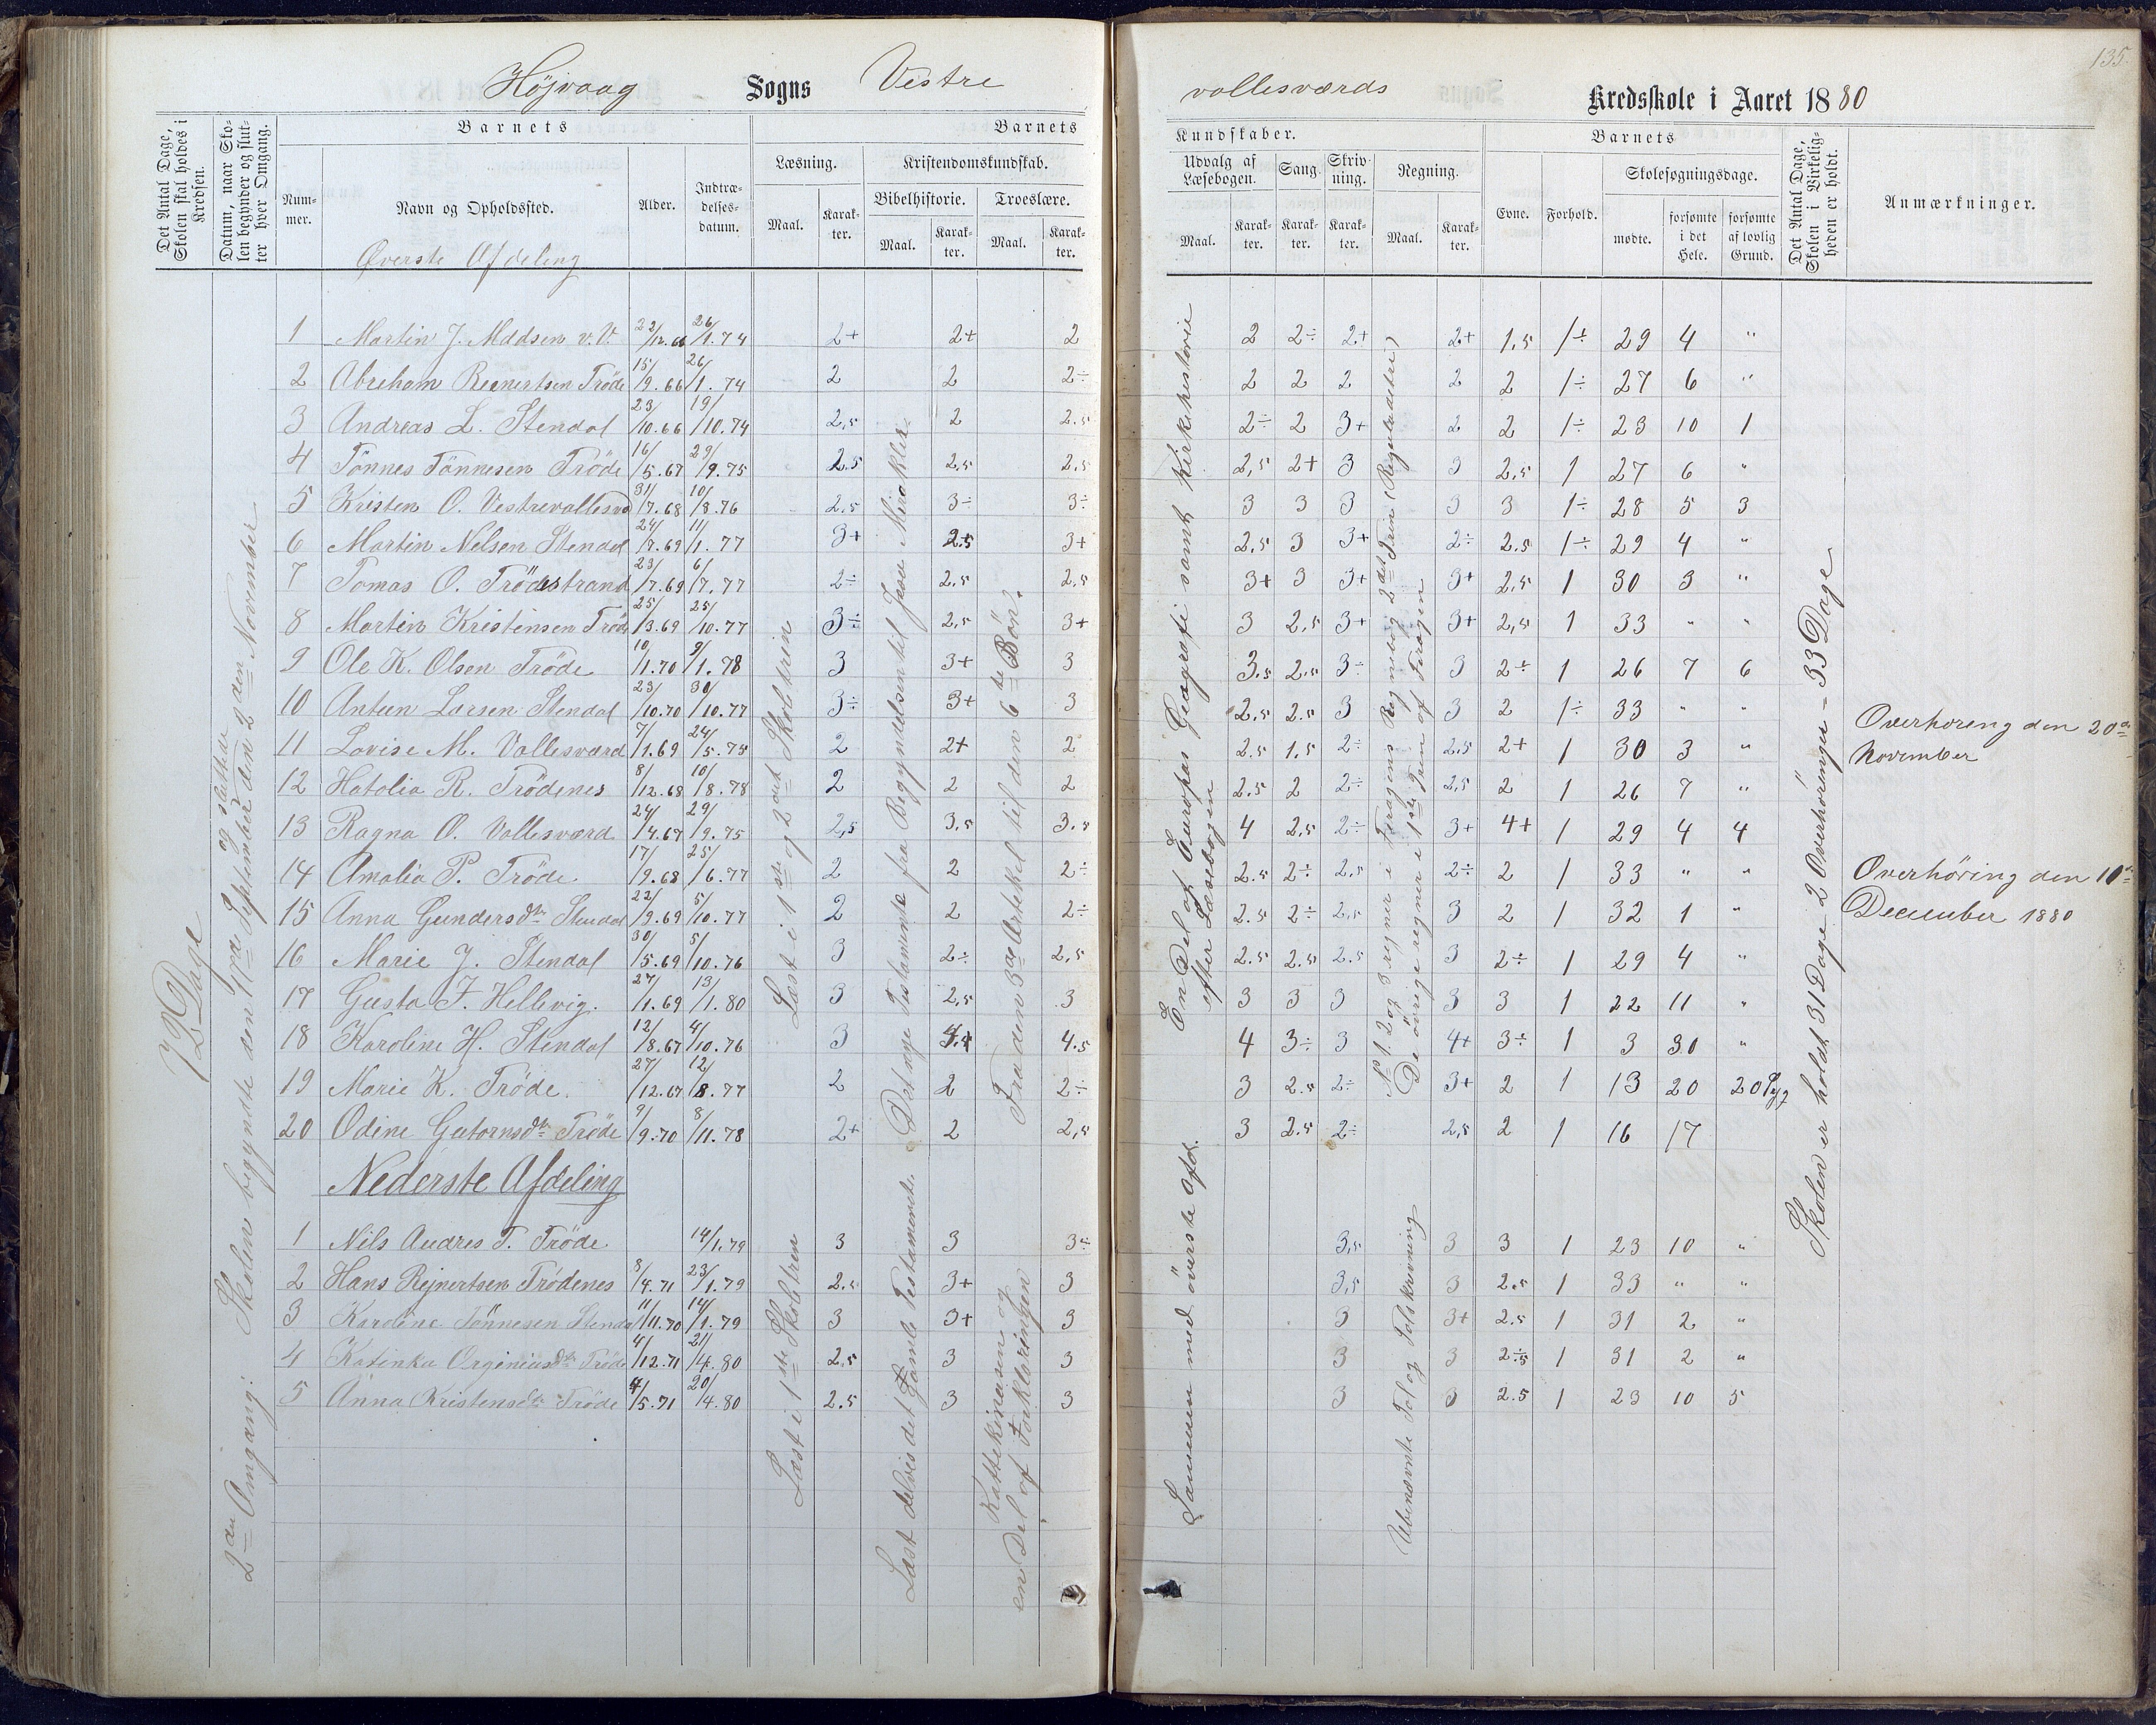 135.
Højvaag Sogns Vestre vallesværds Kredsskole i Aaret 1880
Det Antal Dage, Skolen skal holdes i Kredsen.
Datum, naar Skolen begynder og slutter hver Omgang.
Barnets
Nummer.
Navn og Opholdssted.
Alder.
Indtrædelsesdatum.
Barnets
Læsning.
Maal.
Karakter.
Kristendomskundskab.
Bibelhistorie.
Maal.
Karakter.
Troeslære.
Maal.
Karakter.
Kundskaber.
Udvalg af Læsebogen.
Maal.
Karakter.
Sang.
Karakter.
Skrivning.
Karakter.
Regning.
Maal.
Karakter.
Barnets
Evne.
Forhold.
Skolesøgningsdage.
mødte.
forsømte i det Hele.
forsømte af lovlig Grund.
Det Antal Dage, Skolen i Virkeligheden er holdt.
Anmærkninger.
Øverste Afdeling
1 Martin J. Madsen v.V. 22/12.66 26/1.74 2+ 2+ 2 2 2÷ 2+ 2+ 1.5 1÷ 29 4 "
2 Abraham Reinertsen Trøde 15/9.66 26/1.74 2 2 2÷ 2 2 2 2 2 1÷ 27 6 "
3 Andreas L. Stendal 23/10.66 19/10.74 2,5 2 2.5 2÷ 2 3+ 2 2 1÷ 23 10 1
4 Tönnes Tönnesen Tröde 16/5.67 29/9.75 2.5 2,5 2,5 2,5 2+ 3 3 2,5 1 27 6 "
5 Kristen O. Vestrevallesvd 31/7.68 10/8.76 2,5 3÷ 3÷ 3 3 3 3 3 1÷ 28 5 3
6 Martin Nelsen Stendal 24/7.69 11/1.77 3+ 2.5 3+ 2,5 3 3+ 2÷ 2.5 1÷ 29 4 "
7 Tomas O. Trödestrand 23/7.69 6/7.77 2÷ 2,5 2,5 3+ 3 3+ 3+ 2,5 1 30 3 "
8 Martin Kristensen Tröde 25/3.69 25/10.77 3÷ 2,5 3+ 3 2,5 3+ 3+ 2,5 1 33 " "
9 Ole K. Olsen Tröde 10/1.70 9/1.78 3 3+ 3 3.5 2.5 3÷ 3 2÷ 1 26 7 6
10 Anteen Larsen Stendal 23/10.70 30/10.77 3÷ 3+ 3 2.5 2.5 3 3 2 1÷ 33 " "
11 Lovise M. Vallesværd 7/1.69 24/5.75 2 2+ 2 2.5 1.5 2÷ 2,5 2+ 1 30 3 "
12 Hatolia R. Trödenes 8/12.68 10/8.78 2 2 2 2.5 2 2÷ 2,5 2 1 26 7 "
13 Ragna O. Vallesværd 24/4.67 29/9.75 2,5 3.5 3.5 4 2,5 2÷ 3+ 4+ 1 29 4 4
14 Amalia P. Tröde 17/9.68 25/6.77 2 2 2÷ 2.5 2÷ 2.5 2÷ 2 1 33 " "
15 Anna Gundersdtr Stendal 22/9.69 5/10.77 2 2 2÷ 2.5 2÷ 2,5 3 2 1 32 1 "
16 Marie J. Stendal 30/5.69 5/10.76 3 2÷ 2,5 2.5 2.5 2.5 3 2÷ 1 29 4 "
17 Gusta F. Hellevig. 27/1.69 13/1.80 3 2,5 3 3 3 3 3 3 1 22 11 "
18 Karoline H. Stendal 12/8.67 4/10.76 3 4.5 4 3÷ 3 4+ 3÷ 1 3 30 "
19 Marie K. Tröde. 27/12.67 12/8.77 2 2 2÷ 3 2.5 2÷ 3+ 2 1 13 20 20 Syg
20 Odine Gutornsdtr Tröde 9/9.70 8/11.78 2+ 2 2,5 3 2.5 2÷ 2,5 2 1 16 17
Nederste Afdeling
1 Nils Andres T. Tröde 14/1.79 3 3 3÷ 3,5 3 3 1 23 10 "
2 Hans Rejnertsen Trödenes 8/4.71 23/1.79 2.5 3+ 3 3,5 3 2.5 1 33 " "
3 Karoline Tönnesen Stendal 11/11.70 14/1.79 3 3+ 3 3 3+ 2.5 1 31 2 "
4 Katinka Orginiusdtr Tröde 4/12.71 21/4.80 2,5 3 3 3 3 2.5 1 31 2 "
5 Anna Kristensdtr Tröde 4/5.71 20/4.80 2.5 3 3 3 3 2.5 1 23 10 5
72 Dage
2den Omgang: Skolen begyndte den 17de September og sluttede den 2den November
Læst i 1ste og 2det Skoltrin
Det nye Testamente fra Begyndelsen til Jesu Mirakler
Fra den 3de Artikel til den 6te Bön.
Læst i 1ste Skoltren
Læst delvis det Gamle Testamente
Kattekismen og en Del af Forklaringen
En Del af Europas Geografi samt Kirkehistorie efter Læsebogen
Sammen med överste Afd.
No 1. 2 og 3 regner i Feragens Regnebog 2det Trin (Reguladetri)
De övrige regner i 1ste Trin af Feragen
Ubenævnte Tal og Talskrivning
Skolen er holdt 31 Dage 2 Overhöringer = 33 Dage
Overhøreng den 20de November
Overhöring den 10de December 1880